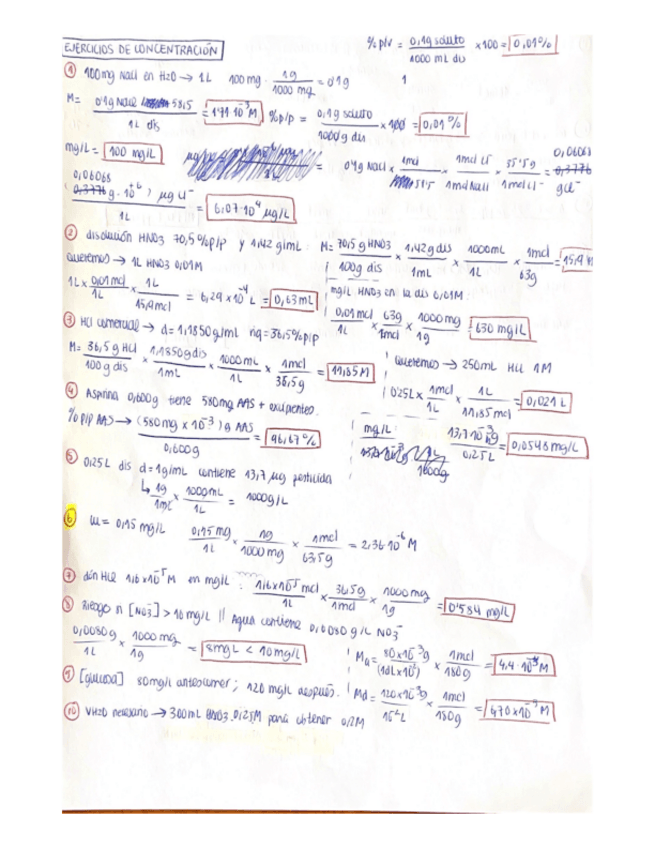 EJERCICIOS DE CONCENTRACIÓN
% p/v = 0,1g soluto / 1000 mL dis × 100 = 0,01%
① 100mg NaCl en H2O → 1L 100mg · 1g / 1000 mg = 0'1g
M = 0'1g NaCl / 1L dis 58,5 = 1'71·10⁻³M % p/p = 0,1g soluto / 1000g dis × 100 = 0,01%
mg/L = 100 mg/L = 0'1g NaCl × 1mol / 58'5 × 1mol Cl⁻ / 1mol NaCl × 35'5g / 1mol Cl⁻ = 0,06068 g Cl⁻
0,06068 g · 10⁺⁶) µg Cl⁻ / 1L = 6,07·10⁴ µg/L
② disolución HNO3 70,5% p/p y 1,42 g/mL : M = 70,5 g HNO3 / 100g dis × 1,42g dis / 1mL × 1000mL / 1L × 1mol / 63g = 15,9 M
Queremos → 1L HNO3 0,01M
1L × 0,01mol / 1L × 1L / 15,9mol = 6,29×10⁻⁴L = 0,63mL
mg/L HNO3 en la dis 0,01M:
0,01mol / 1L × 63g / 1mol × 1000mg / 1g = 630 mg/L
③ HCl comercial → d = 1,1850g/mL riq = 36,5% p/p
M = 36,5g HCl / 100g dis × 1,1850g dis / 1mL × 1000mL / 1L × 1mol / 36,5g = 11,85M
Queremos → 250mL HCl 1M
0'25L × 1mol / 1L × 1L / 11'85mol = 0,021L
④ Aspirina 0,600g tiene 580mg AAS + excipientes.
% p/p AAS → (580mg × 10⁻³) g AAS / 0,600g = 96,67%
⑤ 0'25L dis d = 1g/mL contiene 13,7 µg pesticida
↳ 1g / 1mL × 1000mL / 1L = 1000g/L
mg/L: 13,7·10⁻³ / 0,25L = 0,0548mg/L
⑥ Cu = 0,15 mg/L 0,15mg / 1L × 1g / 1000mg × 1mol / 63,5g = 2,36·10⁻⁶M
⑦ dión HCl 1,6×10⁻⁵M en mg/L : 1,6×10⁻⁵mol / 1L × 36,5g / 1mol × 1000mg / 1g = 0'584 mg/L
⑧ Riesgo si [NO3⁻] > 10 mg/L || Agua contiene 0,0080 g/L NO3⁻
0,0080g / 1L × 1000mg / 1g = 8mg/L < 10mg/L
⑨ [glucosa] 80mg/L antes comer ; 120 mg/L después.
Ma = 80×10⁻³g × 1mol / 180g
Md = 120×10⁻³g / 10⁻²L × 1mol / 180g
⑩ VH2O necesario → 300mL HNO3 0,25M para obtener 0,2M